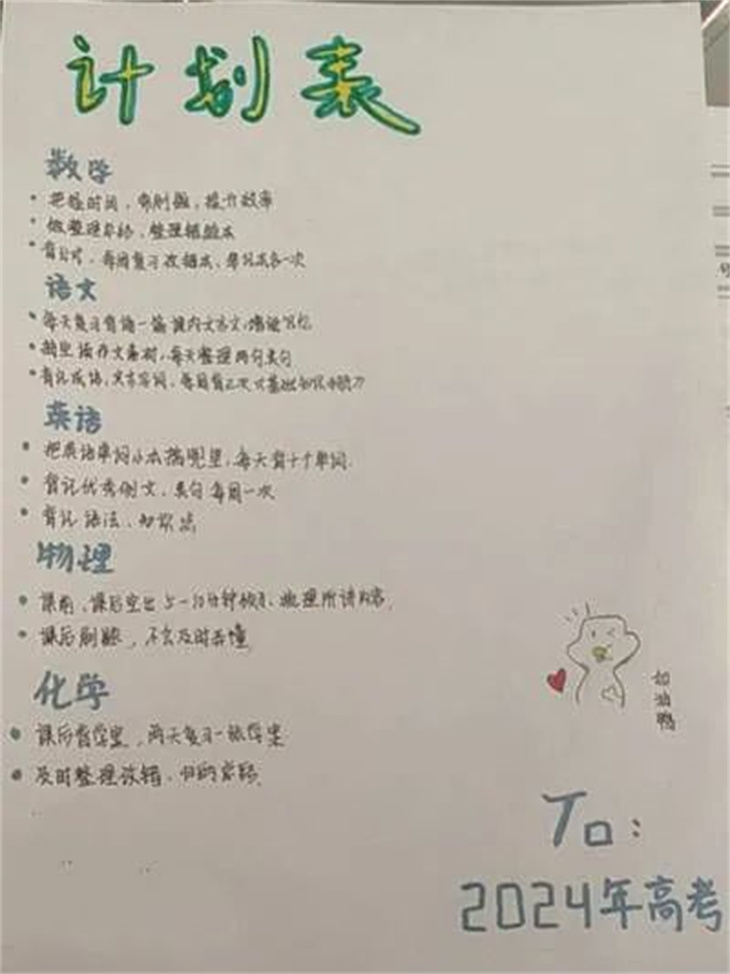 计划表
数学
• 把握时间,常刷题,提升效率
• 做整理总结,整理错题本
• 背公式,每周复习改错本、笔记本各一次
语文
• 每天复习背诵一篇课内文言文,增强记忆
• 积累读作文素材,每天整理两句美句
• 背记成语,文言实词,每周背
英语
• 把英语单词小本揣兜里,每天背十个单词.
• 背记优秀例文,美句每周一次
• 背记语法、知识点
物理
• 课前、课后空出5-10分钟梳理所讲内容.
• 课后刷题,不会及时弄懂
化学
• 课后看学案,两天复习一张学案
• 及时整理改错、归纳总结.
加油鸭
To:
2024年高考